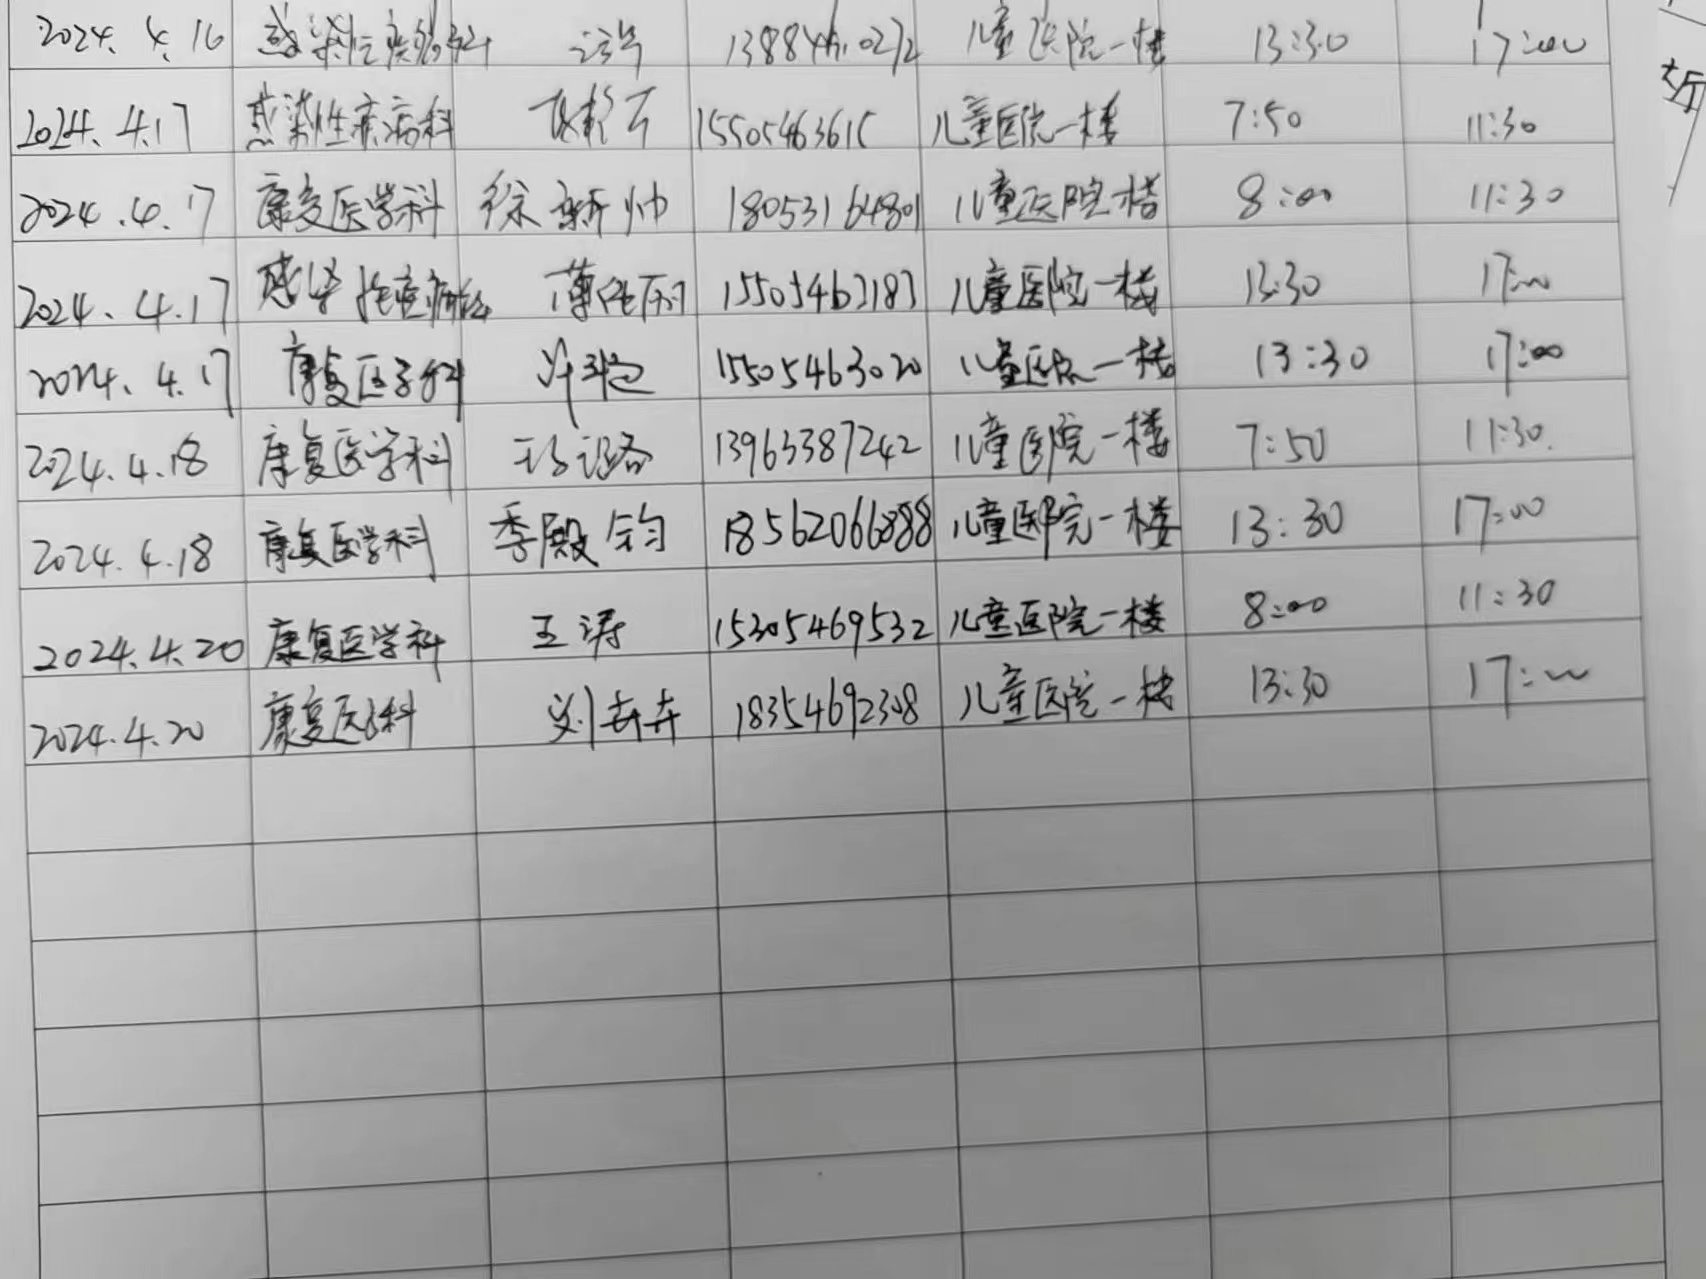 2024.4.16 感染性疾病科 13:30 17:00 儿童医院一楼
2024.4.17 感染性疾病科 15505463615 儿童医院一楼 7:50 11:30
2024.4.17 康复医学科 徐新帅 18053164801 儿童医院一楼 8:00 11:30
2024.4.17 感染性疾病科 15505463183 儿童医院一楼 13:30 17:00
2024.4.17 康复医学科 15505463020 儿童医院一楼 13:30 17:00
2024.4.18 康复医学科 13963387242 儿童医院一楼 7:50 11:30
2024.4.18 康复医学科 季殿钧 18562066888 儿童医院一楼 13:30 17:00
2024.4.20 康复医学科 王涛 15305469532 儿童医院一楼 8:00 11:30
2024.4.20 康复医学科 刘卉卉 18354692308 儿童医院一楼 13:30 17:00